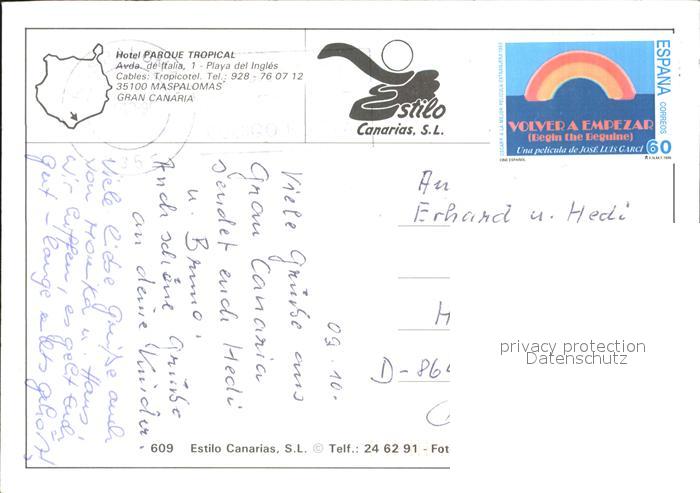 Hotel PARQUE TROPICAL
Avda. de Italia, 1 - Playa del Inglés
Cables: Tropicotel. Tel.: 928 - 76 07 12
35100 MASPALOMAS
GRAN CANARIA
Estilo
Canarias, S.L.
ESPAÑA
CORREOS
VOLVER A EMPEZAR
(Begin the Beguine)
60
Una película de JOSÉ LUIS GARCI
CINE ESPAÑOL
An
Erhard u. Hedi
H
D-864
privacy protection
Datenschutz
09.10.
Viele Grüße aus
Gran Canaria
sendet euch Hedi
u. Bruno
Auch schöne Grüße
an deine Kinder.
Viele liebe Grüße auch
von Monika u. Hans,
wir hoffen, es geht Euch
gut - lange nichts gehört
609 Estilo Canarias, S.L. © Telf.: 24 62 91 - Fot